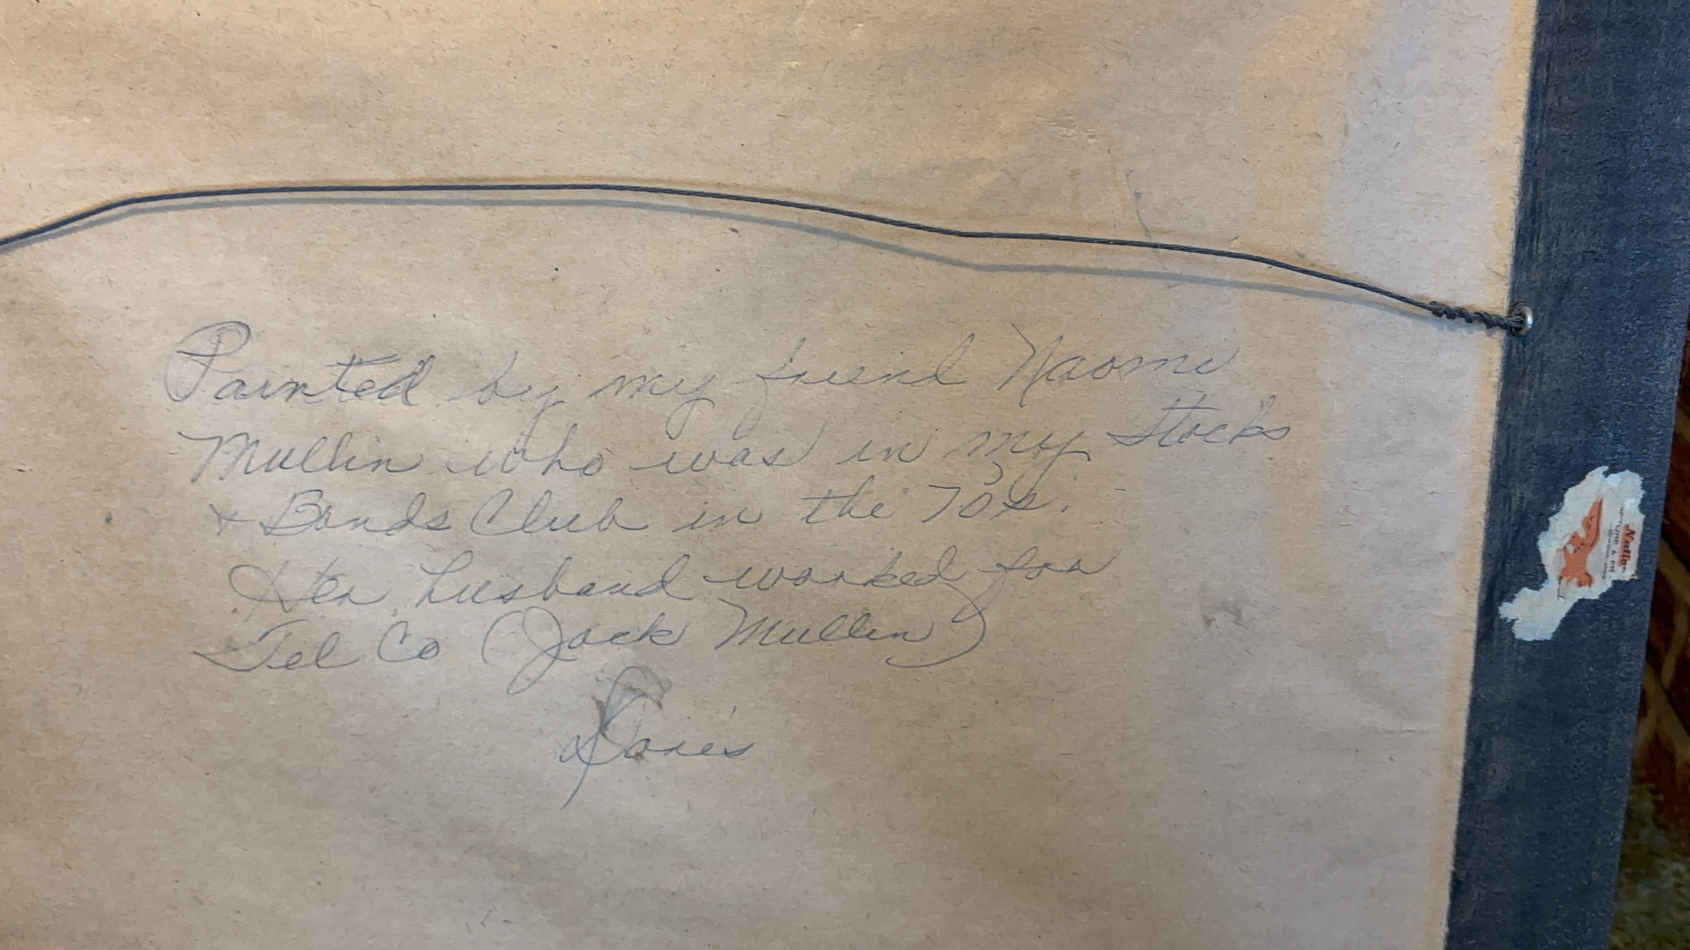 Painted by my friend Naomi
Mullin who was in my Stocks
+ Bonds Club in the 70s.
Her husband worked for
Tel Co (Jack Mullin)